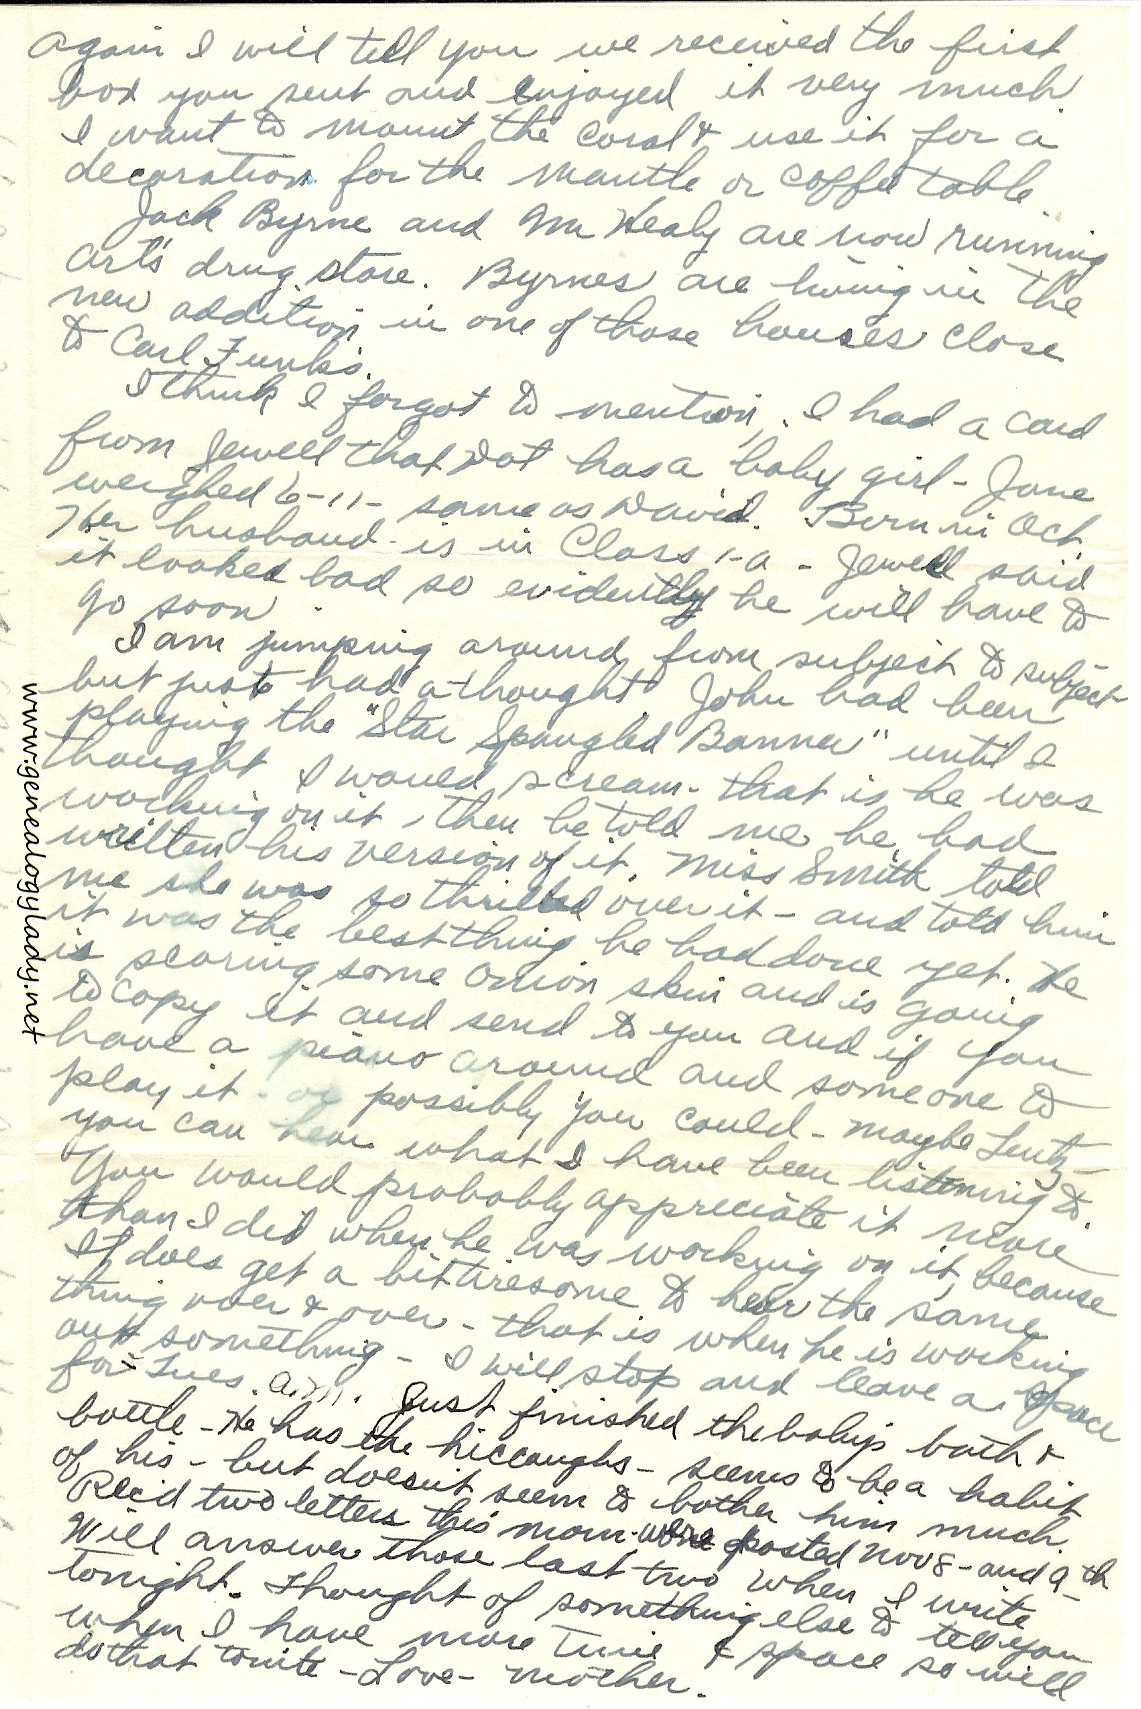 again I will tell you we received the first
box you sent and enjoyed it very much.
I want to mount the coral & use it for a
decoration for the mantle or coffee table.
Jack Byrne and Mr Healy are now running
Art's drug store. Byrnes are living in the
new addition in one of those houses close
to Carl Funk's.
I think I forgot to mention, I had a card
from Jewell that Dot has a baby girl - Jane
weighed 6-11 - same as David. Born in Oct.
Her husband is in Class 1-a - Jewell said
it looked bad so evidently he will have to
go soon.
I am jumping around from subject to subject
but just had a thought. John had been
playing the "Star Spangled Banner" until I
thought I would scream - that is he was
working on it, then he told me he had
written his version of it. Miss Smith told
me she was so thrilled over it - and told him
it was the best thing he had done yet. He
is scoring some onion skin and is going
to copy it and send to you and if you
have a piano around and someone to
play it - or possibly you could - maybe Lentz -
you can hear what I have been listening to.
You would probably appreciate it more
than I did when he was working on it, because
It does get a bit tiresome to hear the same
thing over & over - that is when he is working
out something - I will stop and leave a space
for Tues. a.m. Just finished the baby's bath &
bottle - He has the hiccoughs - seems to be a habit
of his - but doesn't seem to bother him much.
Rec'd two letters this morn. were posted Nov 8 - and 9 - th
Will answer those last two when I write
tonight. Thought of something else to tell you
when I have more time & space so will
do that tonite - Love - Mother.
www.genealogylady.net